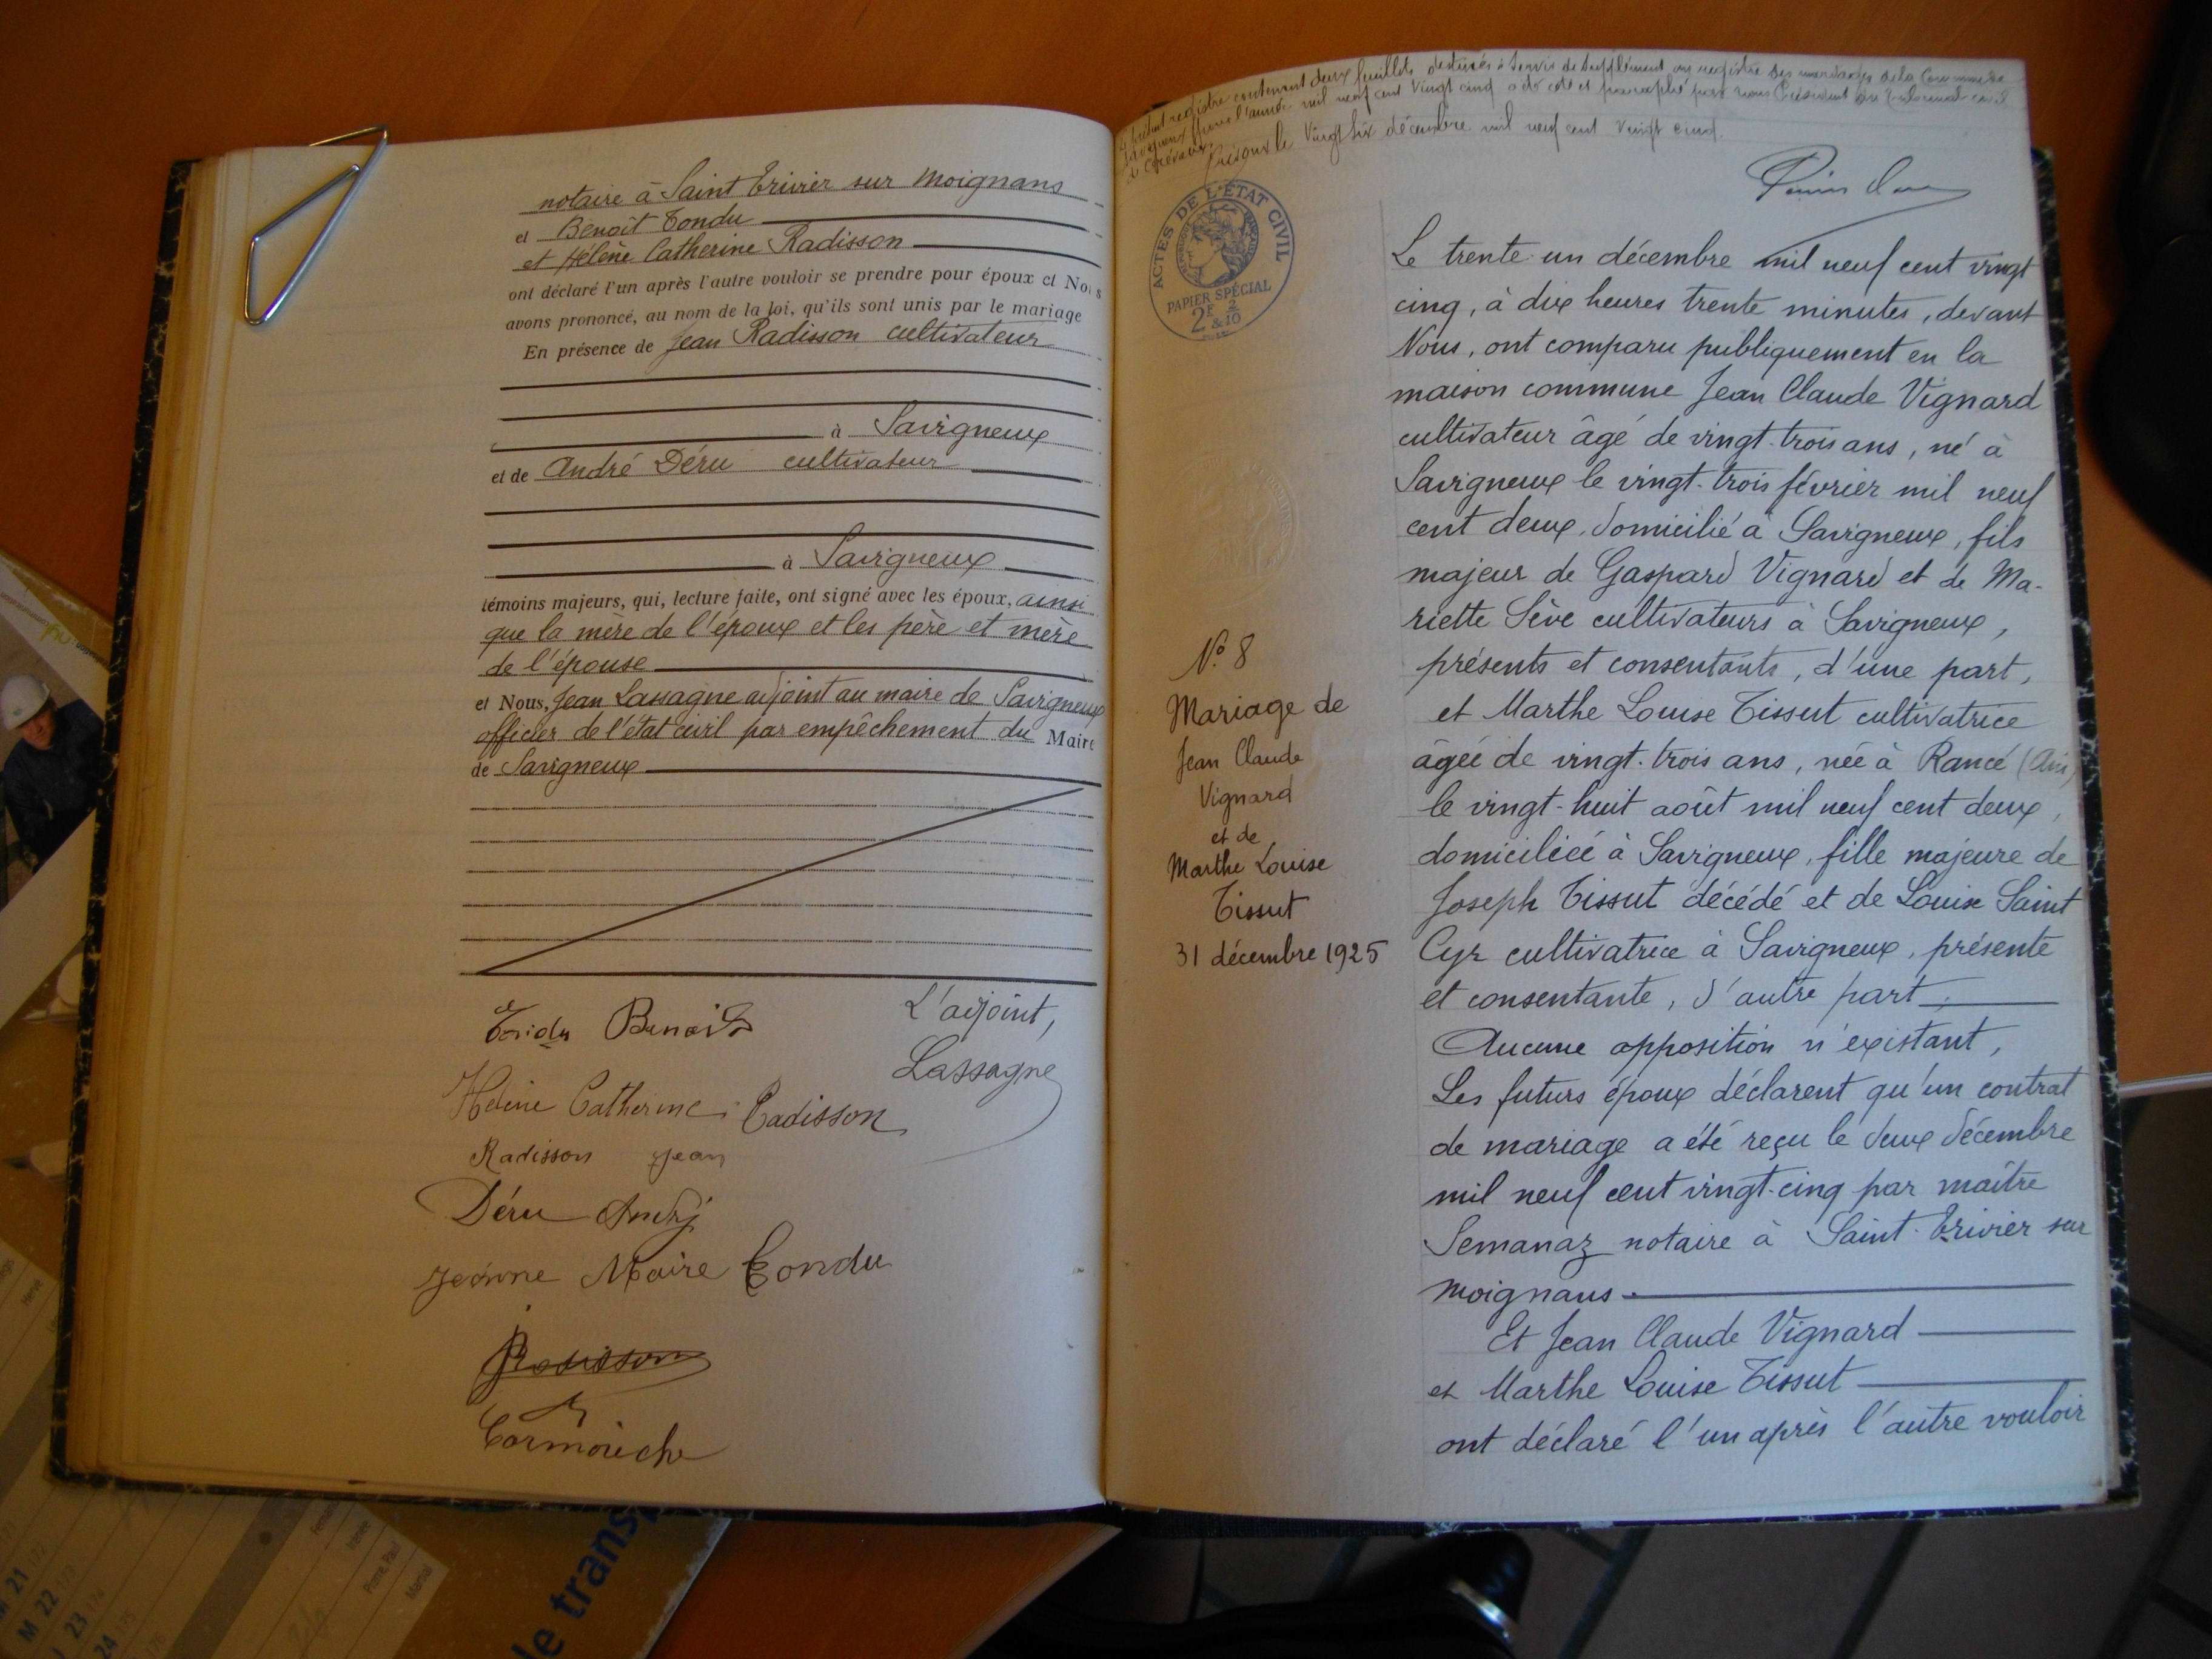 notaire à Saint Trivier sur Moignans
et Benoît Tondu
et Hélène Catherine Radisson
ont déclaré l'un après l'autre vouloir se prendre pour époux et Nous
avons prononcé, au nom de la loi, qu'ils sont unis par le mariage
En présence de Jean Radisson cultivateur
à Savigneux
et de André Déru cultivateur
à Savigneux
témoins majeurs, qui, lecture faite, ont signé avec les époux, ainsi
que la mère de l'époux et les père et mère
de l'épouse
et Nous, Jean Lassagne adjoint au maire de Savigneux
officier de l'état civil par empêchement du Maire
de Savigneux
Tondu Benoit
L'adjoint,
Lassagne
Hélène Catherine Radisson
Radisson Jean
Déru André
Jeanne Marie Tondu
Radisson
Cormorèche
Le présent registre contenant deux feuillets destinés à servir de supplément au registre des mariages de la Commune de
Savigneux pour l'année mil neuf cent vingt cinq a été coté et paraphé par nous Président du Tribunal civil
de Trévoux
Trévoux le vingt six décembre mil neuf cent vingt cinq.
ACTES DE L'ÉTAT CIVIL
PAPIER SPÉCIAL
2F 2
&10
Le trente un décembre mil neuf cent vingt
cinq, à dix heures trente minutes, devant
Nous, ont comparu publiquement en la
maison commune Jean Claude Vignard
cultivateur âgé de vingt-trois ans, né à
Savigneux le vingt-trois février mil neuf
cent deux, domicilié à Savigneux, fils
majeur de Gaspard Vignard et de Ma-
riette Sève cultivateurs à Savigneux,
présents et consentants, d'une part,
et Marthe Louise Tissut cultivatrice
âgée de vingt-trois ans, née à Rancé (Ain)
le vingt-huit août mil neuf cent deux,
domiciliée à Savigneux, fille majeure de
Joseph Tissut décédé et de Louise Saint
Cyr cultivatrice à Savigneux, présente
et consentante, d'autre part;
Aucune opposition n'existant,
Les futurs époux déclarent qu'un contrat
de mariage a été reçu le deux décembre
mil neuf cent vingt-cinq par maître
Semanaz notaire à Saint-Trivier sur
Moignans.
Et Jean Claude Vignard
et Marthe Louise Tissut
ont déclaré l'un après l'autre vouloir
N.º 8
Mariage de
Jean Claude
Vignard
et de
Marthe Louise
Tissut
31 décembre 1925
le trans
M 21
M 22
J 23
24